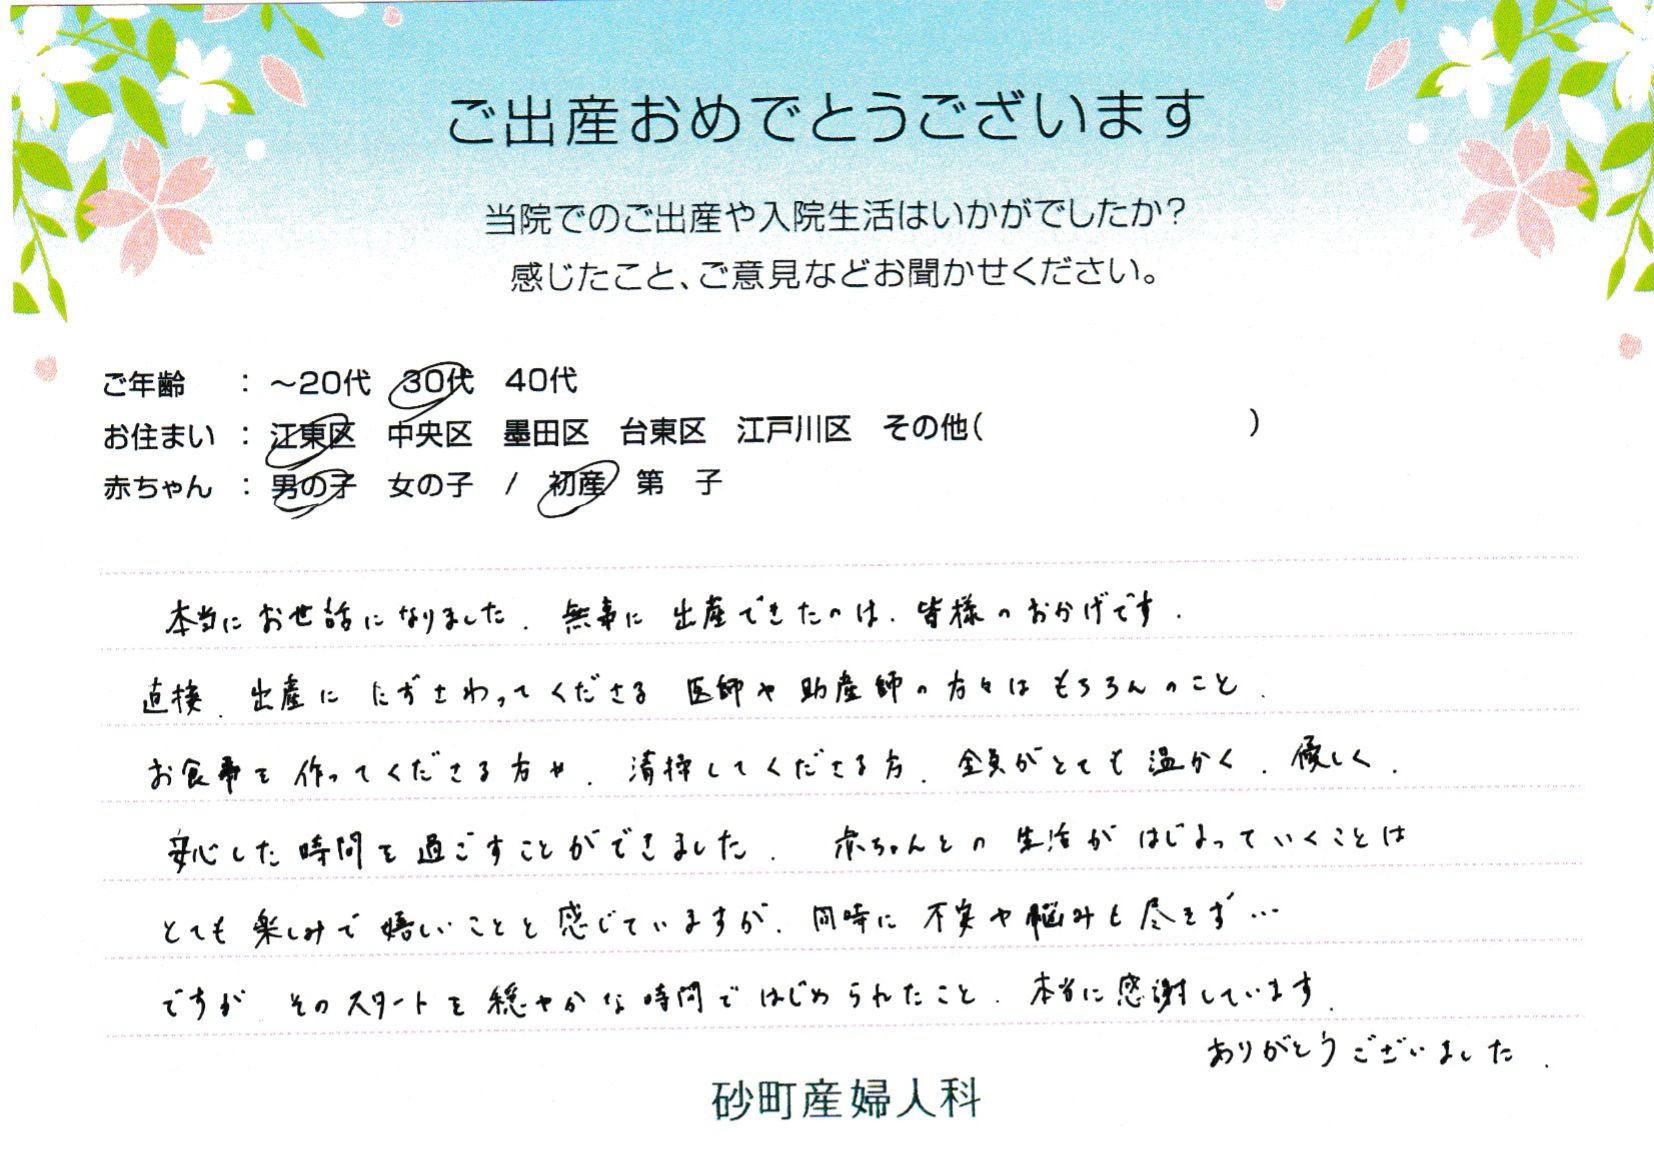 ご出産おめでとうございます
当院でのご出産や入院生活はいかがでしたか?
感じたこと、ご意見などお聞かせください。
ご年齢 : ～20代 30代 40代
お住まい : 江東区 中央区 墨田区 台東区 江戸川区 その他( )
赤ちゃん : 男の子 女の子 / 初産 第 子
本当にお世話になりました. 無事に出産できたのは、皆様のおかげです.
直接、出産にたずさわってくださる医師や助産師の方々はもちろんのこと、
お食事を作ってくださる方や、清掃してくださる方、全員がとても温かく、優しく、
安心した時間を過ごすことができました. 赤ちゃんとの生活がはじまっていくことは
とても楽しみで嬉しいことと感じていますが、同時に不安や悩みも尽きず…
ですが、そのスタートを穏やかな時間ではじめられたこと、本当に感謝しています.
ありがとうございました.
砂町産婦人科